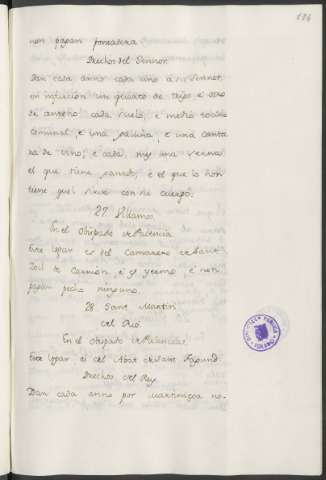 124
non pagan fonsadera
Drechos del Sennor
Dan cada anno cada uno a su Sennor
en infurción un quarto de trigo e otro
de centeno cada suelo, e medio toçino
cominal, e una gallina, e una cantara
ra de vino, e cada mes una serna
el que tiene ganado, e el que lo non
tiene quel sirve con su cuerpo.
27 Villamor
En el Obispado de Palencia
Este logar es del Camarero de Sant
Zoil de Carrion, e es yermo, e non
pagan pecho ninguno.
28 Sant Martin
del Rio
En el Obispado de Palencia
Este logar es del Abat de Sant Fagund
Drechos del Rey
Dan cada anno por Martiniega no-